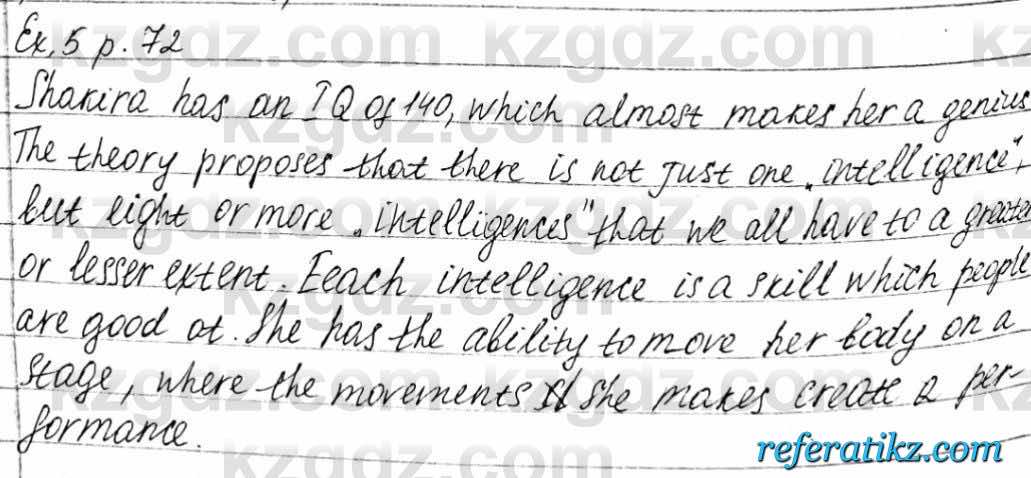 Ex. 5 p. 72
Shakira has an IQ of 140, which almost makes her a genius.
The theory proposes that there is not just one „intelligence",
but eight or more „intelligences" that we all have to a greater
or lesser extent. Eeach intelligence is a skill which people
are good at. She has the ability to move her body on a
stage, where the movements she makes create a per-
formance.
kzgdz.com
referatikz.com